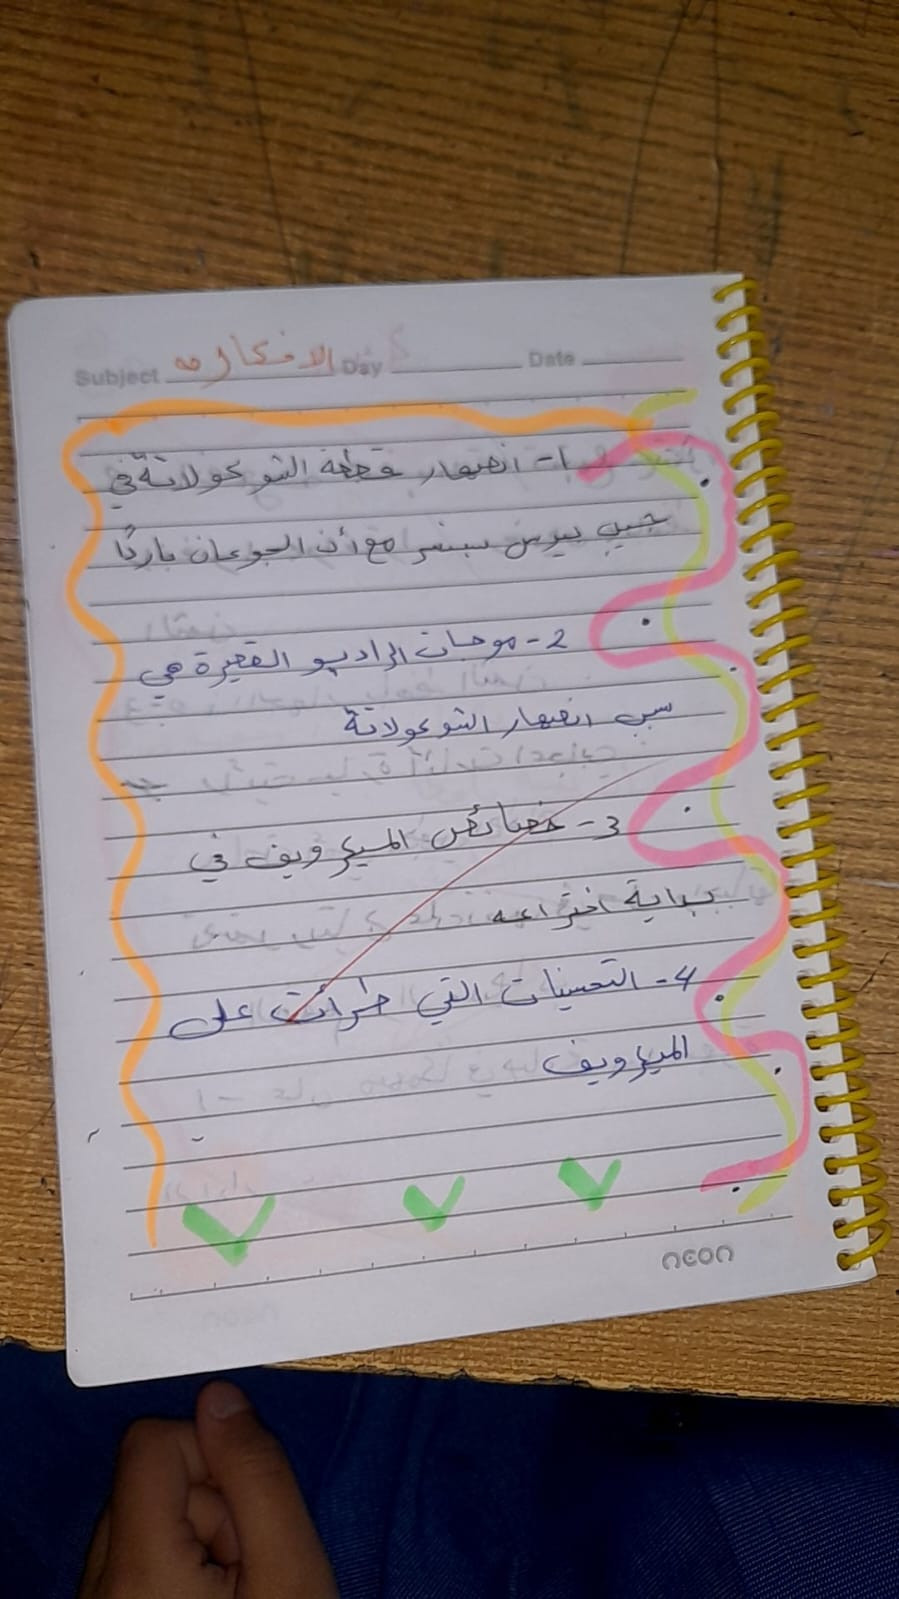 Subject الافكار Day Date
1- انصهار قطعة الشوكولاتة في
جيب بيرس سبنسر مع أن الجو كان باردًا
2- موجات الراديو القصيرة هي
سبب انصهار الشوكولاتة
3- خصائص الميكرويف في
بداية اختراعه
4- التحسينات التي طرأت على
الميكرويف
neon